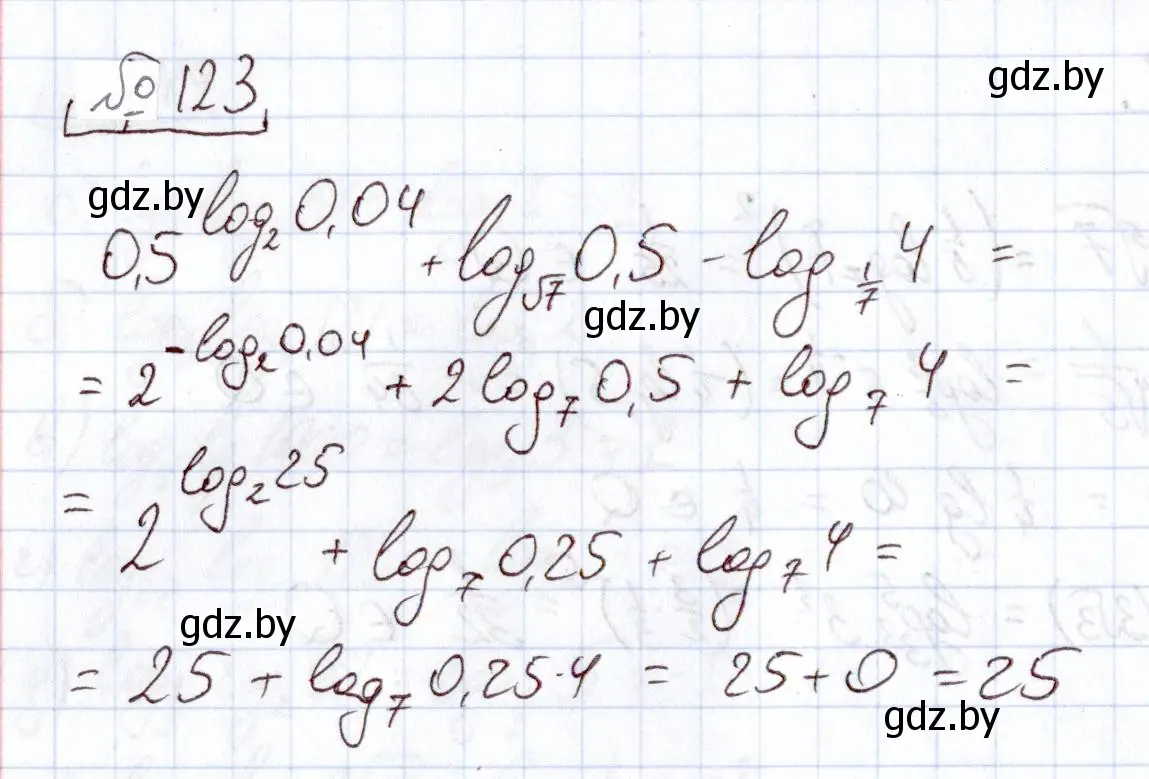 № 123
gdz.by
gdz.by
0,5^{log_2 0,04} + log_{√7} 0,5 - log_{1/7} 4 =
gdz.by
= 2^{-log_2 0,04} + 2 log_7 0,5 + log_7 4 =
= 2^{log_2 25} + log_7 0,25 + log_7 4 =
gdz.by
= 25 + log_7 0,25·4 = 25 + 0 = 25
gdz.by